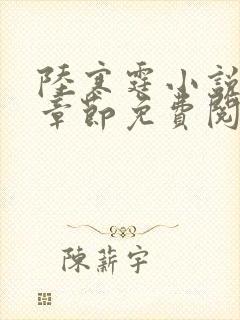 陸寒霆小說
章節免費閱
陳薪宇